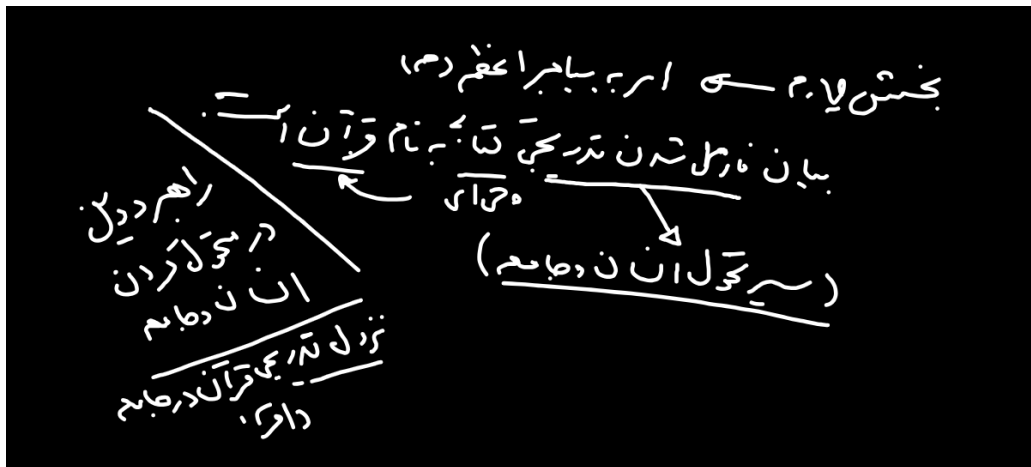 بخش چهارم ← امر به پیامبر اعظم (ص)
بیان نازل شدن تدریجی کتابی به نام قرآن است.
(سیر تحول انسان و جامعه)
راهبرد دین
در متحول کردن
انسان و جامعه
نزول تدریجی قرآن در جامعه
دارد.